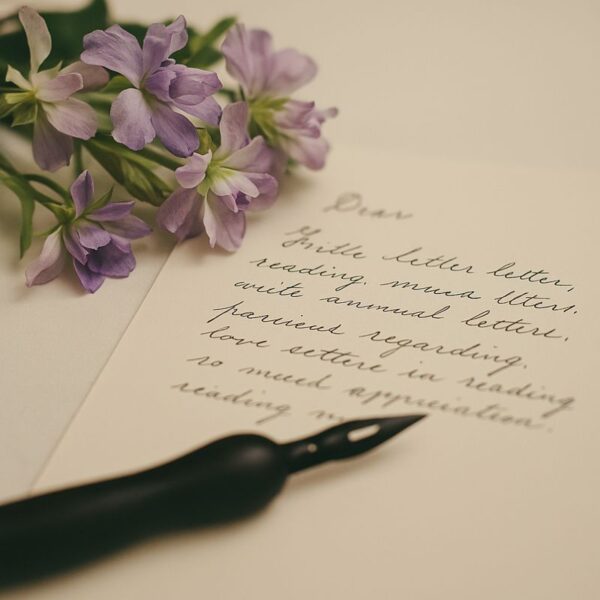 Dear
letter letter,
reading. much
write annual letters.
regarding.
love settere in reading
so much appreciation.
reading